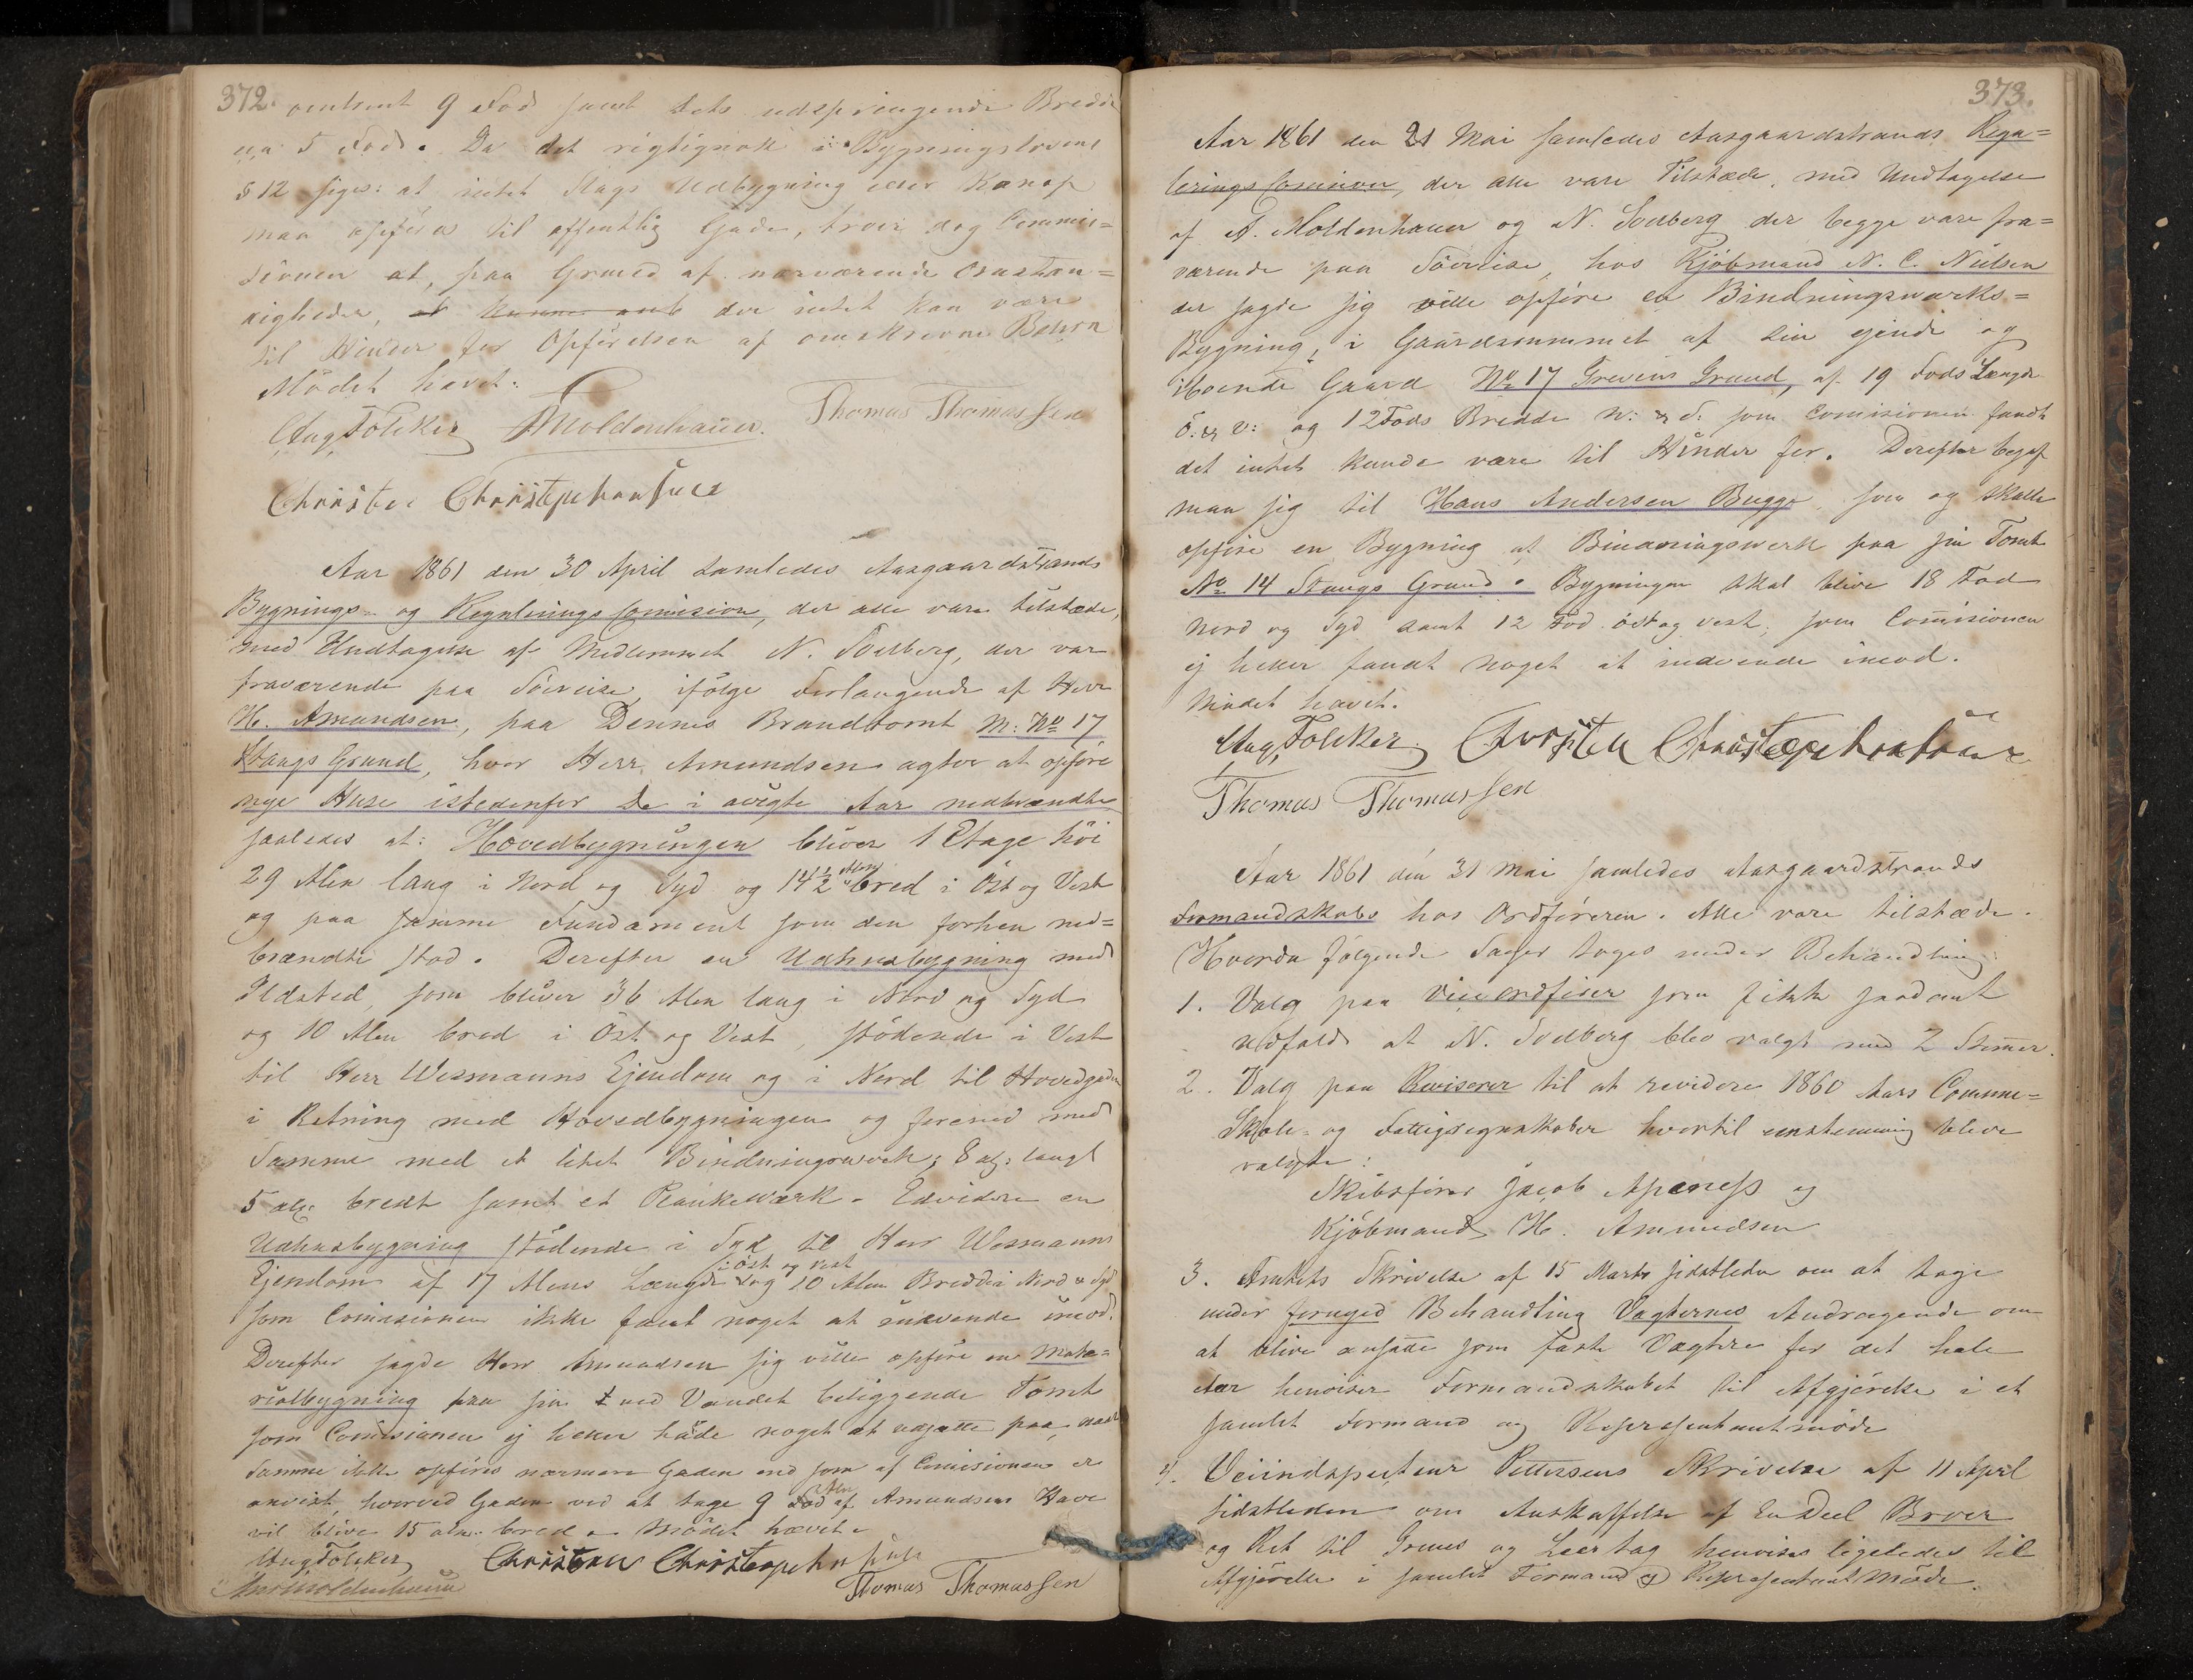 372.
omtrent 9 Fod samt dets udspringende Bredde
ca: 5 Fod. Da det rigtignok i Bygningslovens
§ 12 siges: at intet Slags Udbygning eller Karnap
maa opføres til offentlig Gade, troer dog Commis=
sionen at, paa Grund af nærværende Omstæn=
digheder, der intet kan være
til Hinder for Opførelsen af omskrevne
Mödet hævet.
Aug Fölcker AMoldenhauer. Thomas Thomassen
Christen Christophersen
Aar 1861 den 30 April samledes Aasgaardstrands
Bygnings- og Reguleringscomision, der alle vare tilstæde,
med Undtagelse af Medlemmet N. Sodberg, der var
fraværende paa Söereise, ifölge Forlangende af Herr
H. Amundsen, paa Dennes Brandtomt M: No 17
Stangs Grund, hvor Herr Amundsen agter at opföre
nye Huse istedenfor De i avigte Aar nedbrændte
saaledes at: Hovedbygningen bliver 1 Etage höi
29 Alen lang i Nord og Syd og 14½ Alen bred i Öst og Vest
og paa samme Fundament som den forhen ned=
brændte stod. Derefter en Udhusbygning med
Ildsted, som bliver 36 Alen lang i Nord og Syd
og 10 Alen bred i Öst og Vest, stödende i Vest
til Herr Wesmanns Ejendom og i Nord til Hovedgaden
i Retning med Hovedbygningen og forened med
Samme med et litet Bindningsværk; 8 al: langt
5 al: bredt samt et Plankeværk. Endvidere en
Udhusbygning stödende i Syd til Herr Wesmanns
Ejendom af 17 Alens Længde i öst og vest og 10 Alen Bredde i Nord & Syd
som Comisionen ikke fandt noget at indvende imod.
Derefter sagde Herr Amundsen sig ville opföre en Mate=
rialbygning paa sin ved Vandet beliggende Tomt
som Comisionen ej heller hade noget at udsætte paa, naar
Samme ikke opföres nærmere Gaden end som af Comisionen er
anvist, hvorved Gaden ved at tage 9 Alen af Amundsens Have
vil blive 15 alen bred. Mödet hævet.
Aug Fölcker Christen Christophersen
AMoldenhauer Thomas Thomassen
373.
Aar 1861 den 21 Mai samledes Aasgaardstrands Regu=
leringscomision, der alle vare Tilstæde, med Undtagelse
af A. Moldenhauer og N. Sodberg der begge vare fra=
værende paa Söereise, hos Kjöbmand N. C. Nielsen
der sagde sig ville opföre en Bindningsværks=
Bygning, i Gaardsrummet af sin ejende og
iboende Gaard No 17 Grevens Grund, af 19 Fods Længde
ö: & v: og 12 Fods Bredde n: & s: som Comisionen fandt
det intet kunde være til Hinder for. Derefter begaf
man sig til Hans Andersen Bugge, som og skulle
opföre en Bygning af Bindningsverk paa sin Tomt
No 14 Stangs Grund. Bygningen skal blive 18 Fod
Nord og Syd samt 12 Fod öst og vest, som Comisionen
ej heller fandt noget at indvende imod.
Mödet hævet.
Aug Fölcker. Christen Christophersen
Thomas Thomassen
Aar 1861 den 31 Mai samledes Aasgaardstrands
Formandskabs hos Ordföreren. Alle vare tilstæde.
Hvorda fölgende Sager toges under Behandling:
1. Valg paa Viceordförer som fikk saadant
udfald at N. Sodberg blev valgt med 2 Stemmer.
2. Valg paa Revisorer til at revidere 1860 Aars Commune=
Skole- og Fattigregnskaber hvortil enstemmig bleve
valgte:
Skibsförer Jacob Apenes og
Kjöbmand H. Amundsen
3. Amtets Skrivelse af 15 Marts sidstleden om at tage
under fornyed Behandling Vagternes Andragende om
at blive ansatte som faste Vægtere for det hele
Aar henviser Formandskabet til Afgjörelse i et
samlet Formand og Repræsentantmöde
4. Veiindspecteur Pettersens Skrivelse af 11 April
sidstleden om Anskaffelse af En Deel Broer
og Ret til Gruus og Leertag henvises ligeledes til
Afgjörelse i samlet Formand og Repræsentant Möde.